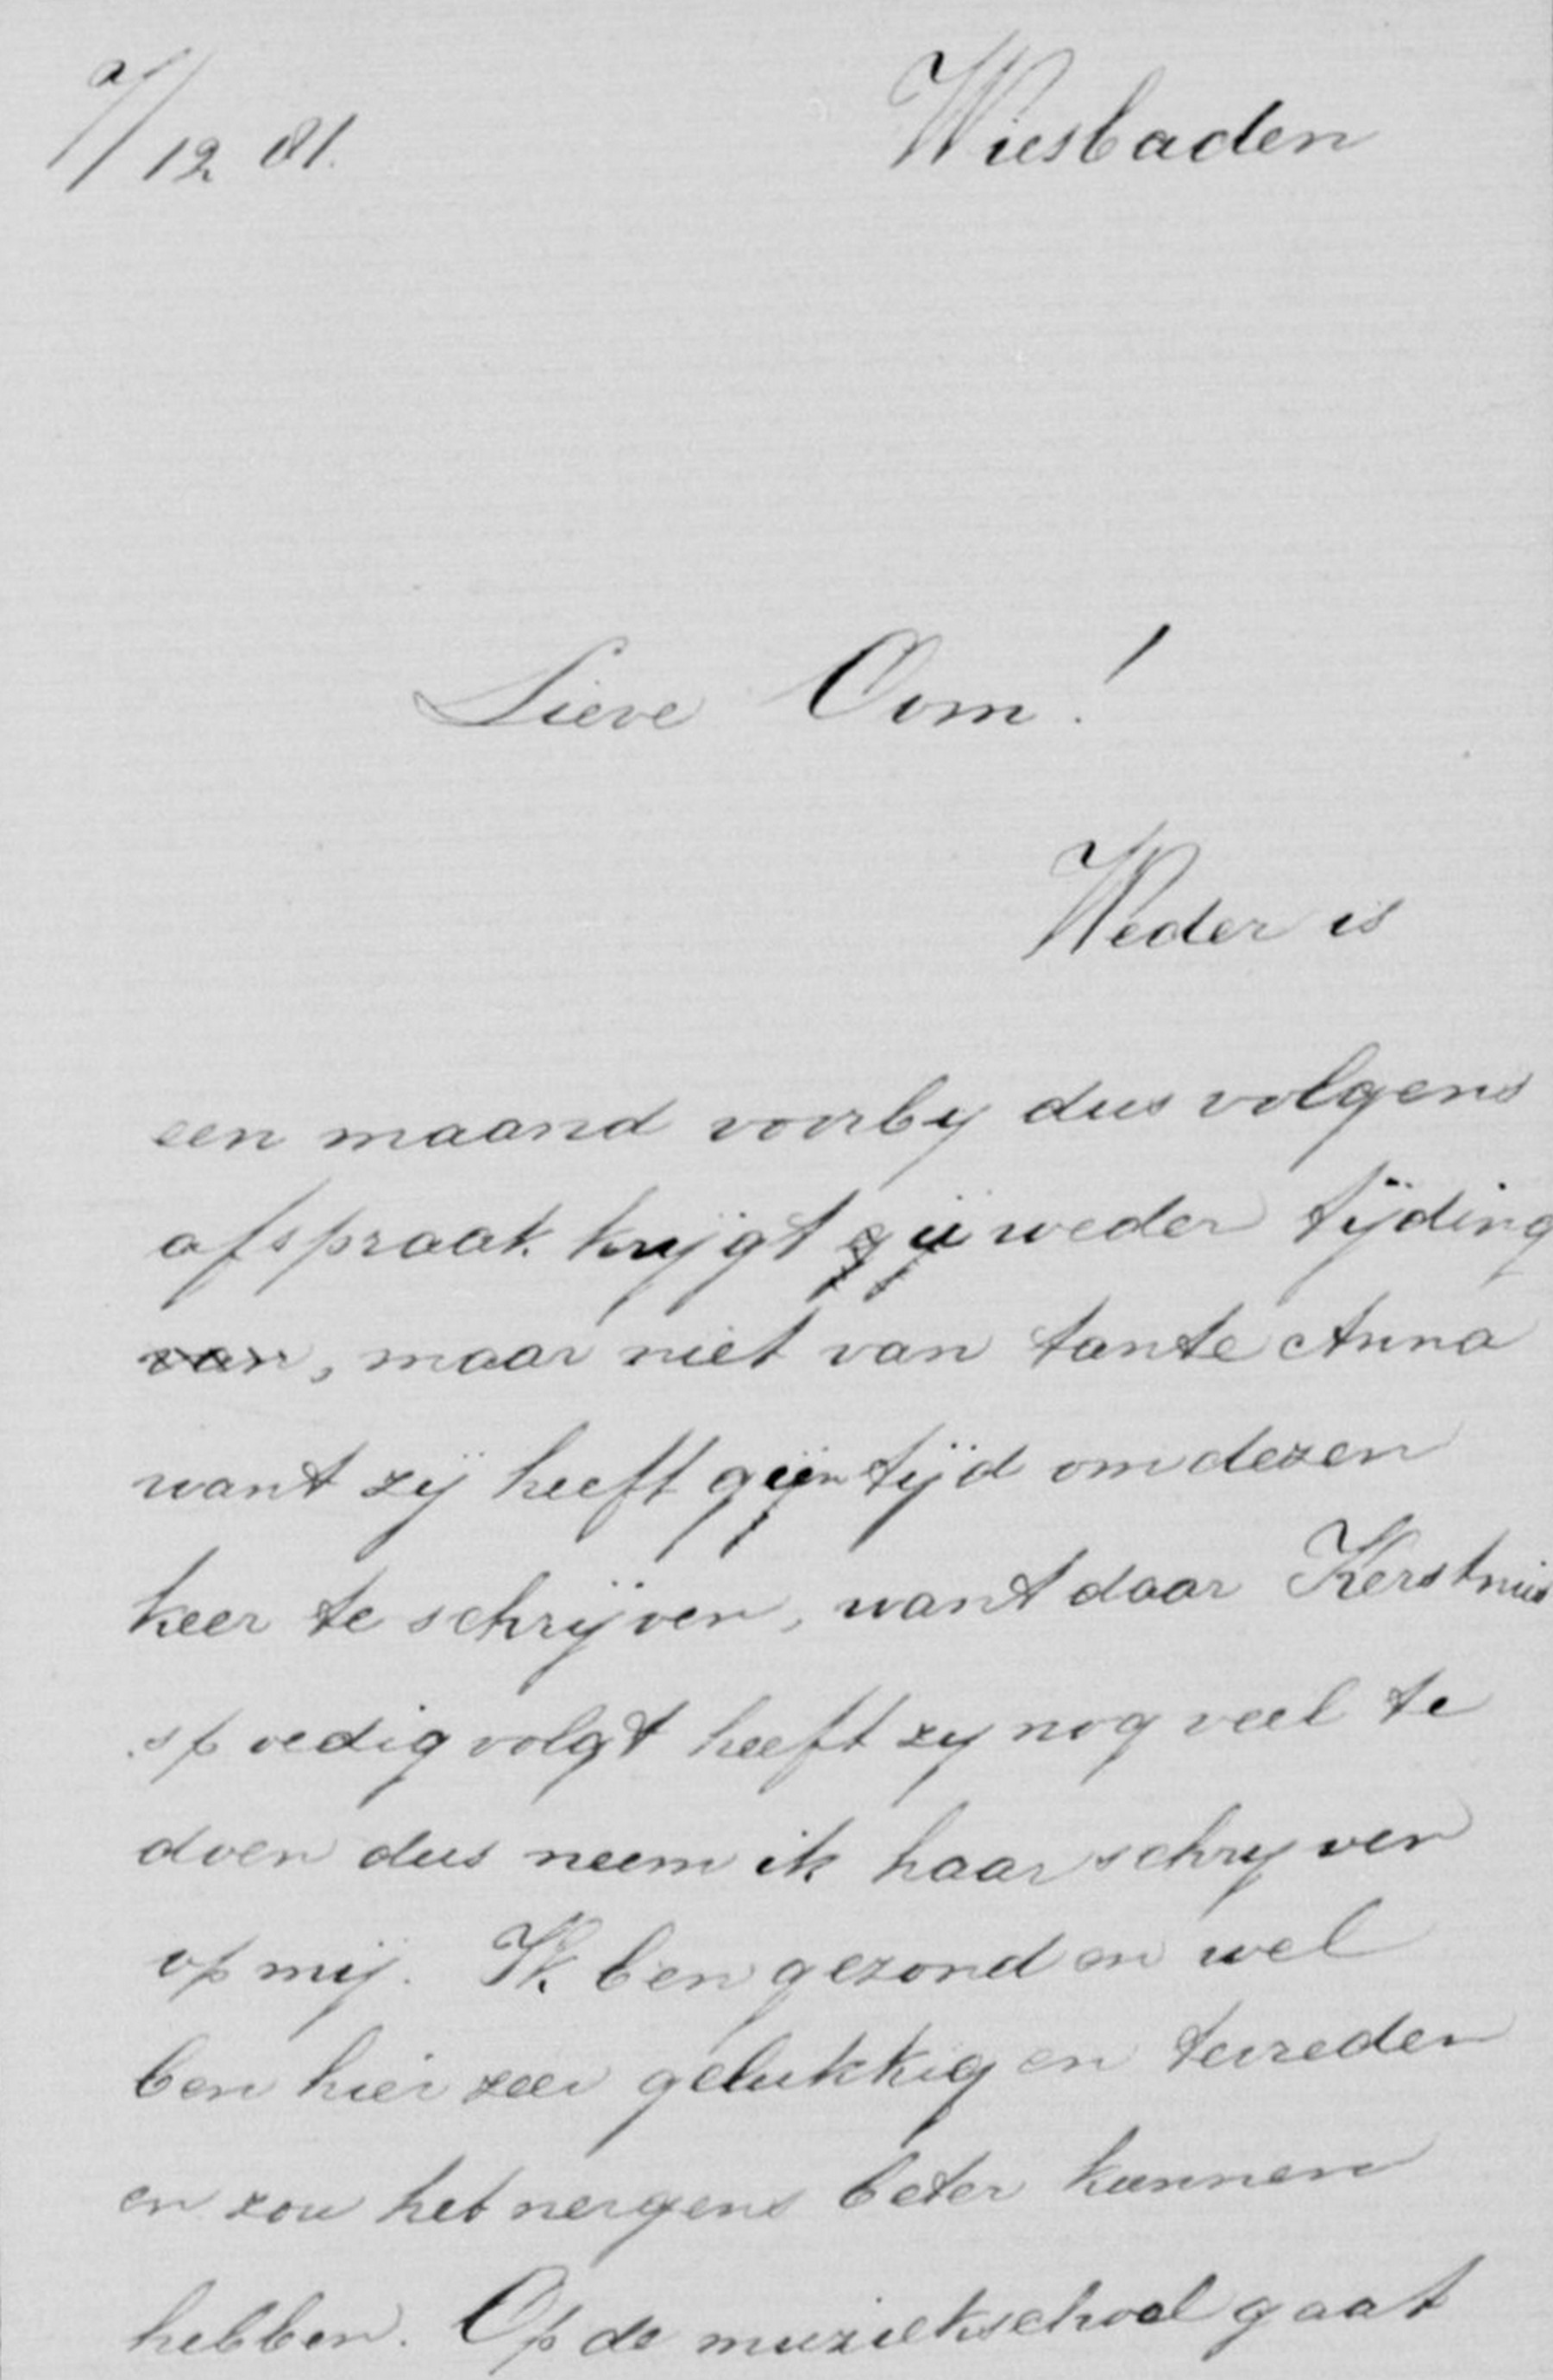 7/12 81. Wiesbaden
Lieve Oom!
Weder is
een maand voorby dus volgens
afspraak krijgt u weder tijding
van, maar niet van tante Anna
want zij heeft geen tijd om dezen
keer te schrijven, want daar Kerstmis
spoedig volgt heeft zy nog veel te
doen dus neem ik haar schryven
op mij. Ik ben gezond en wel
ben hier zeer gelukkig en tevreden
en zou het nergens beter kunnen
hebben. Op de muziekschool gaat